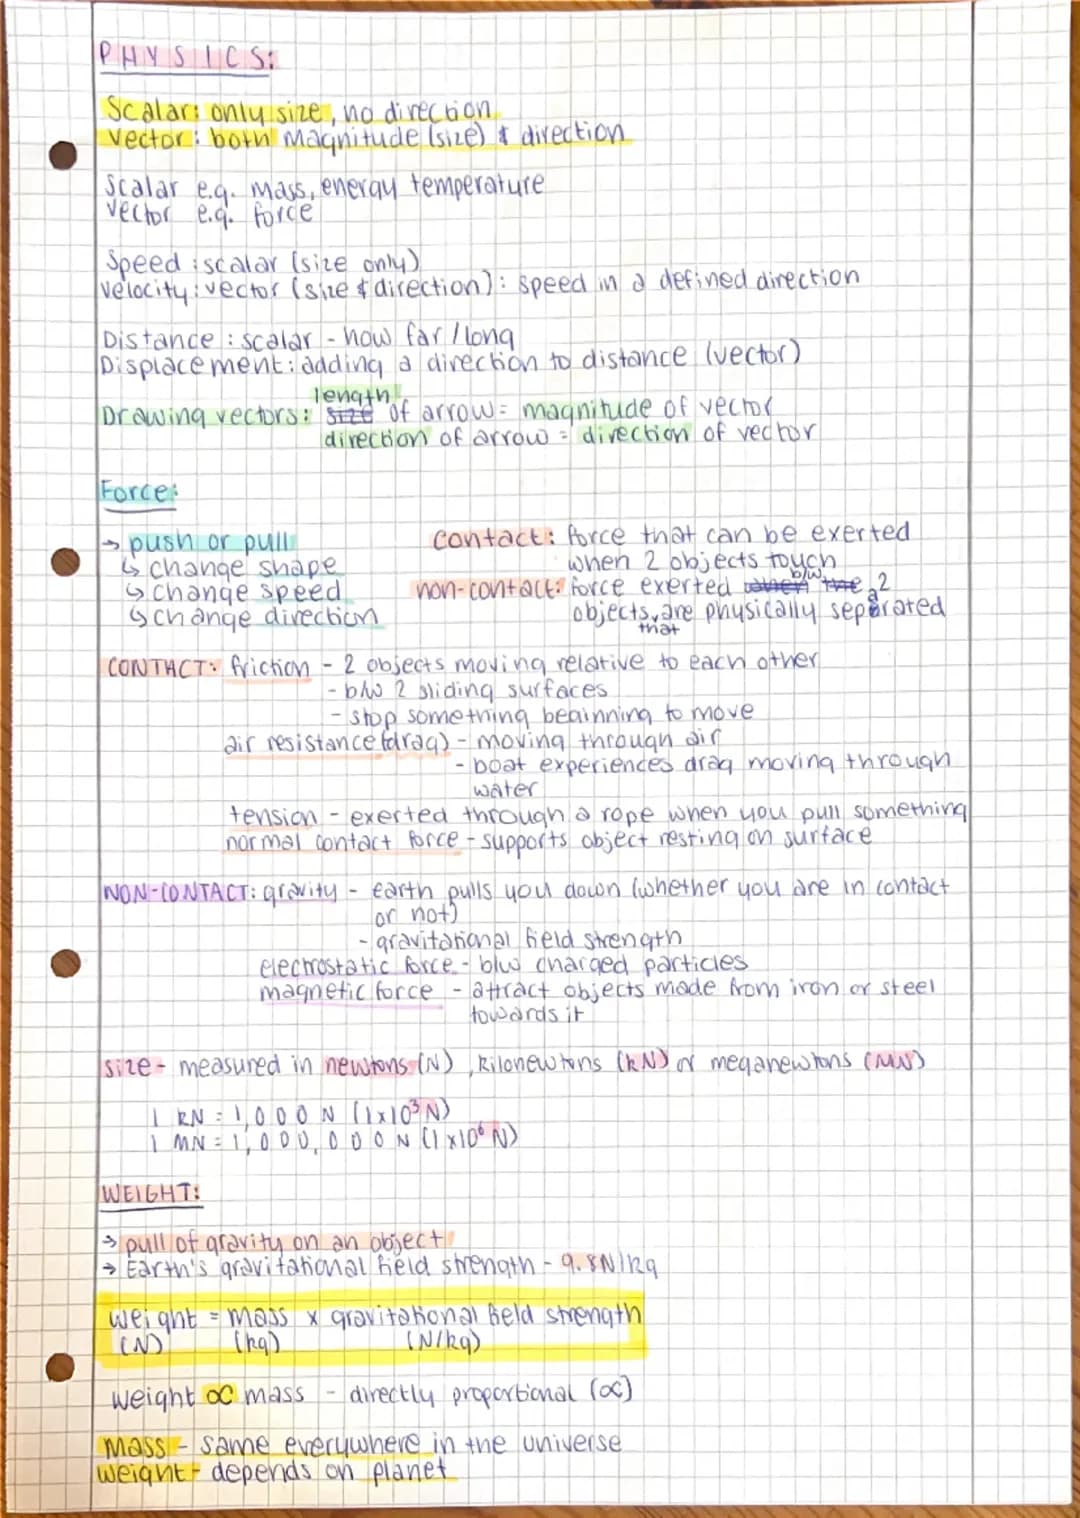 PHYSICS:
Scalar: only size, no direction
Vector: both magnitude (size) & direction
Scalar e.g. mass, energy temperature
Vector e.g. force
Speed: scalar (size only)
Velocity: vector (size & direction): speed in a defined direction
Distance: scalar - how far/long
Displacement: adding a direction to distance (vector)
length
Drawing vectors: size of arrow = magnitude of vector
direction of arrow = direction of vector
Force:
→ push or pull
↳ change shape
↳ change speed
↳ change direction
contact: force that can be exerted
when 2 objects touch
b/w
non-contact: force exerted when the 2
objects, are physically separated
that
CONTACT: friction - 2 objects moving relative to each other
- b/w 2 sliding surfaces
- stop something beginning to move
air resistance (drag) - moving through air
- boat experiences drag moving through
water
tension - exerted through a rope when you pull something
normal contact force - supports object resting on surface
NON-CONTACT: gravity - earth pulls you down (whether you are in contact
or not)
- gravitational field strength
electrostatic force - b/w charged particles
magnetic force - attract objects made from iron or steel
towards it
size - measured in newtons (N), kilonewtons (kN) or meganewtons (MN)
1 kN = 1,000 N (1x10³ N)
1 MN = 1,000,000 N (1x10⁶ N)
WEIGHT:
→ pull of gravity on an object
→ Earth's gravitational field strength - 9.8N/kg
weight = mass x gravitational field strength
(N) (kg) (N/kg)
weight ∝ mass - directly proportional (∝)
mass - same everywhere in the universe
weight - depends on planet